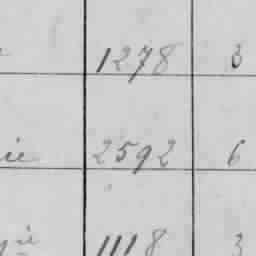 1278 3
ie 2592 6
1118 3